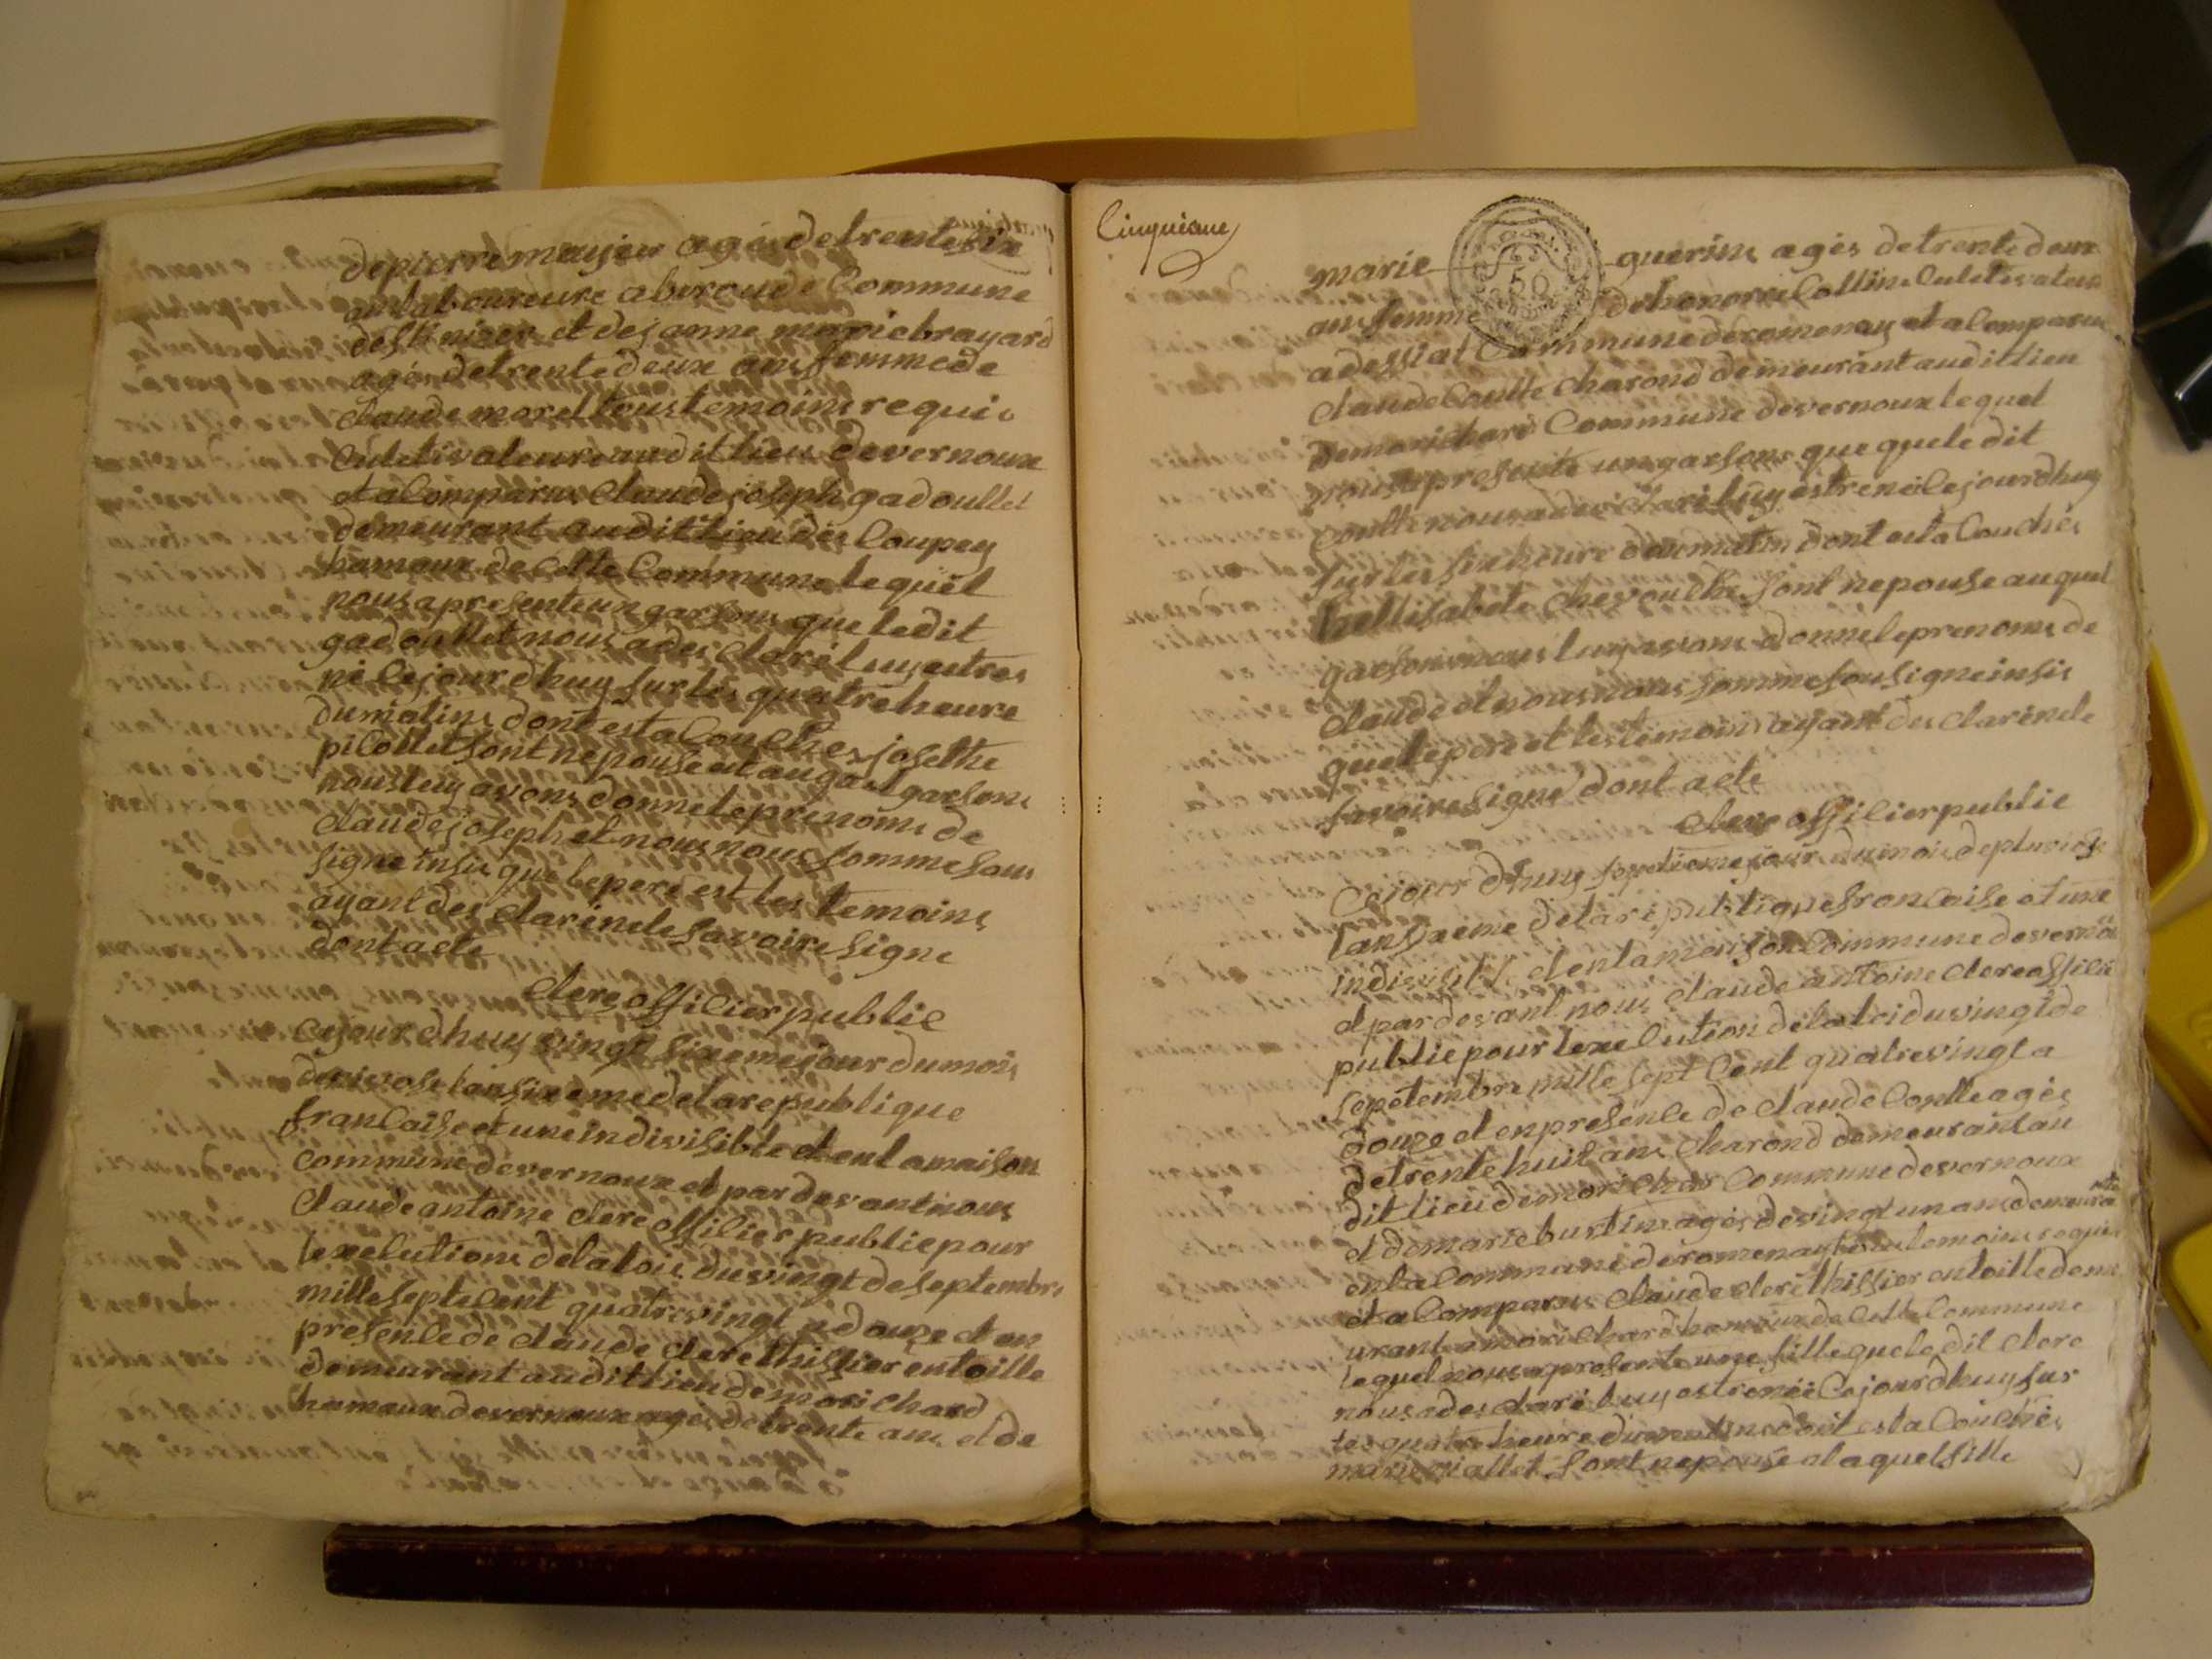 depierre mayeu agés detrente six
ans laboureure aberoude Commune
de st nizer et dejanne marie brayard
agés detrente deux ans femme de
claude morel tous temoins requis
Culetivateure audit lieu devernoux
et a Comparus Claude joseph gadoullet
demeurant audit lieu des Coupey
hamaux de Cette Commune lequel
nous a presente un garsons que ledit
gadoullet nous a des claré luy estres
né Cejour dhuy sur les quatre heure
du matins dont est a Couchés josethe
picollet sont nepouse et auqael garsons
nous luy avons donné le prenoms de
Claude joseph et nous nous somme sous
signe insis que lepere est les temoins
ayant des clarè nele savoire signe
dont acte
clere offilier public
Cejour dhuy vingt sixeme jour dumois
de nivose lan sixeme de la republique
francaise et une indivisible et en la maison
Commune de vernoux et par devant nous
Claude antoine clere offilier public pour
lexelutions dela loix du vingt de septembre
mille sept cent quatrevingt a douze et en
presenle de claude clere thissier entoille
demeurant audit lieu de morichard
hamaux de vernoux agés de trente ans et de
Cinquieme
marie querins agés detrente deux
ans femme dehonorré Collin Culetivateur
a dessiat Commune deromenay et a Comparus
claude Coutte charond demeurant audit lieu
demorichard Commune devernoux lequel
nous a presenté un garsons que que le dit
Coutte nous a des claré luy estre né Cejourdhuy
sur les six heure du matin dont est a Couchés
hellisabete chevouthe sont nepouse auquel
garsons nous luy avons donné le prenoms de
claude et nous nous somme sousigne insis
que lepere et les temoins ayant des clarè nele
savoire signé dont acte
clere offilier public
Cejour dhuy septieme jour du mois de pluviose
lan sixeme de la republique francaise et une
indivisible et en la maison Commune devernou
et par devant nous claude antoine clere offilie
public pour lexelution dela loi du vingt de
sepetembre mille sept Cent quatrevingt a
douze et en presenle de claude Coutte agés
detrente huit ans charond demeurant au
dit lieu demorichar Commune devernoux
et de marie bustins agés devingt un ans demeura
enla Commune deromenay temoins requis
et a Comparus claude clere thissier entoille deme
urant a morichard hamaux de Cette Commune
lequel nous a presenté une fille que le dit clere
nous a des claré luy estre néé Cejourdhuy sur
les quatre heure du matins dont est a Couchés
marie viallet sont nepouse alaquel fille